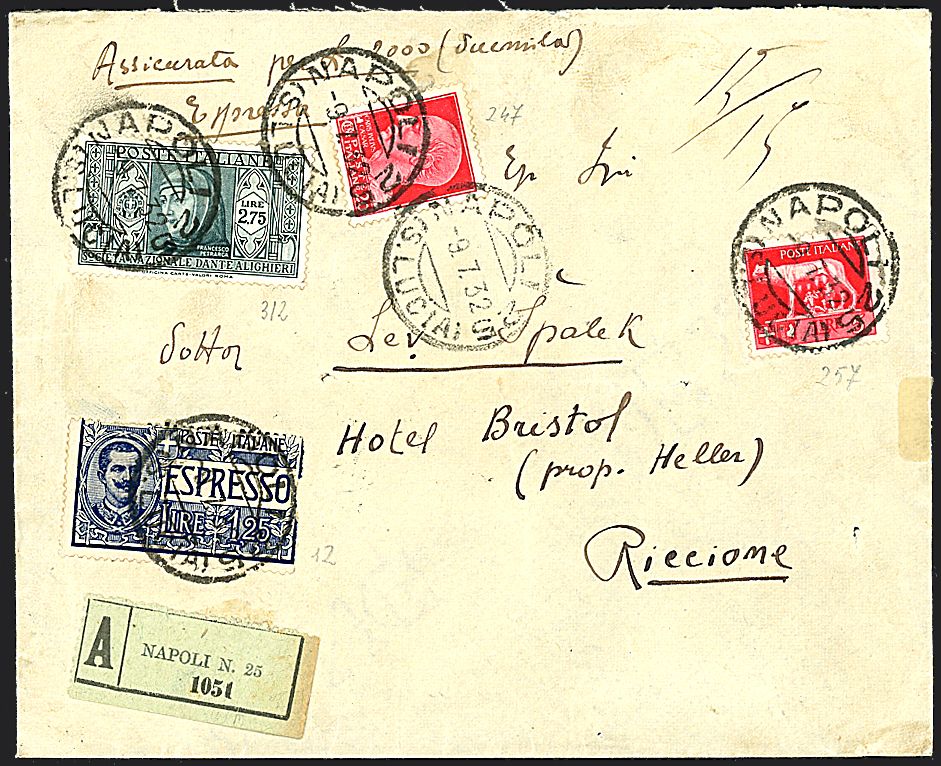 Assicurata per L 2000 (duemila)
Espresso
247
POSTE ITALIANE
LIRE
2.75
FRANCESCO
PETRARCA
SOCIETA NAZIONALE DANTE ALIGHIERI
OFFICINA CARTE-VALORI ROMA
312
NAPOLI 25
NAPOLI 25
NAPOLI 25
-9.7.32.
NAPOLI 25
POSTE ITALIANE
257
Dottor Lev Spalek
Hotel Bristol
(prop. Heller)
Riccione
POSTE ITALIANE
ESPRESSO
LIRE 1,25
12
A
NAPOLI N. 25
1051